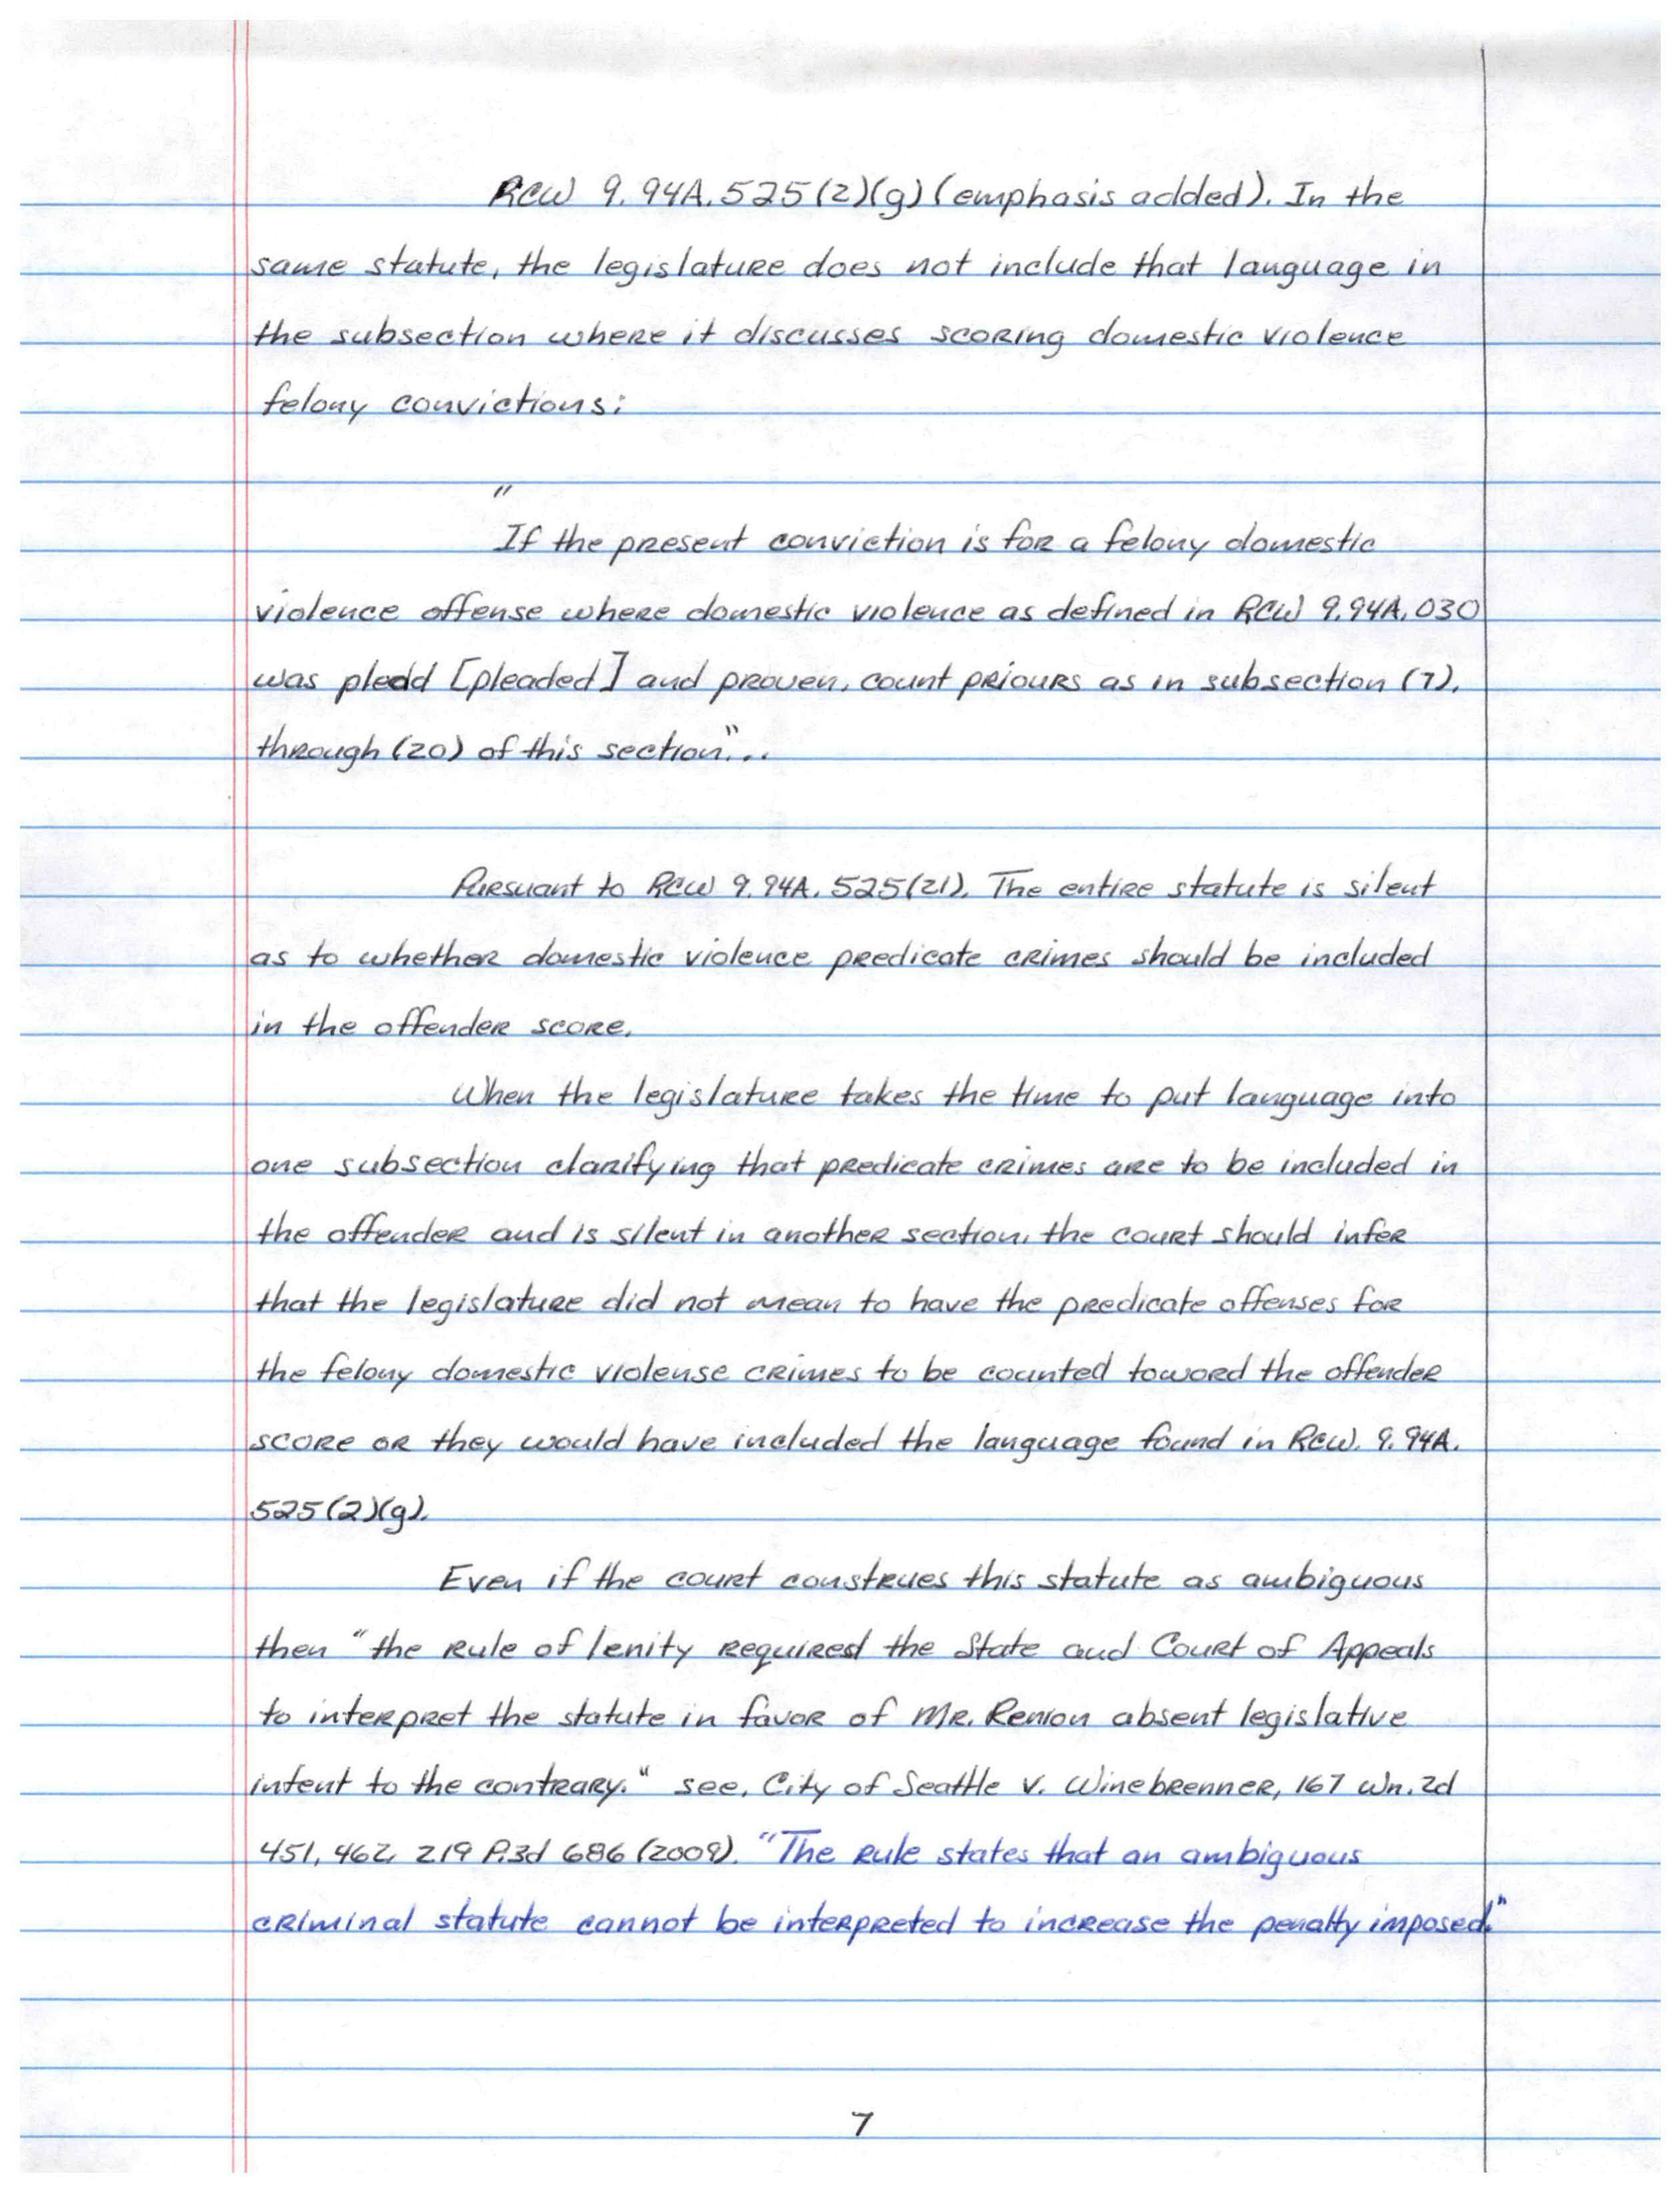 RCW 9.94A.525(2)(g) (emphasis added). In the
same statute, the legislature does not include that language in
the subsection where it discusses scoring domestic violence
felony convictions:
"
If the present conviction is for a felony domestic
violence offense where domestic violence as defined in RCW 9.94A.030
was pledd [pleaded] and proven, count priours as in subsection (7),
through (20) of this section"...
Pursuant to RCW 9.94A.525(21). The entire statute is silent
as to whether domestic violence predicate crimes should be included
in the offender score.
When the legislature takes the time to put language into
one subsection clarifying that predicate crimes are to be included in
the offender and is silent in another section, the court should infer
that the legislature did not mean to have the predicate offenses for
the felony domestic violense crimes to be counted toward the offender
score or they would have included the language found in RCW. 9.94A.
525(2)(g).
Even if the court construes this statute as ambiguous
then "the rule of lenity required the State and Court of Appeals
to interpret the statute in favor of Mr. Renion absent legislative
intent to the contrary." see, City of Seattle v. Winebrenner, 167 Wn.2d
451, 462, 219 P.3d 686 (2009). "The rule states that an ambiguous
criminal statute cannot be interpreted to increase the penalty imposed."
7